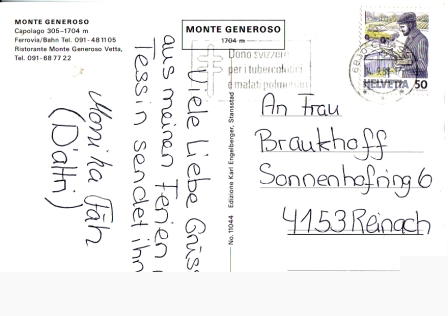 MONTE GENEROSO
Capolago 305-1704 m
Ferrovia/Bahn Tel. 091-48 11 05
Ristorante Monte Generoso Vetta,
Tel. 091-68 77 22
MONTE GENEROSO
1704 m
Dono svizzero
per i tubercolotici
e malati polmonari
HELVETIA 50
Viele liebe Grüss
aus meinen Ferien
Tessin sendet ihn
Monika Fäh
No. 11044 Edizione Karl Engelberger, Stansstad
An Frau
Braukhoff
Sonnenhofring 6
4153 Reinach